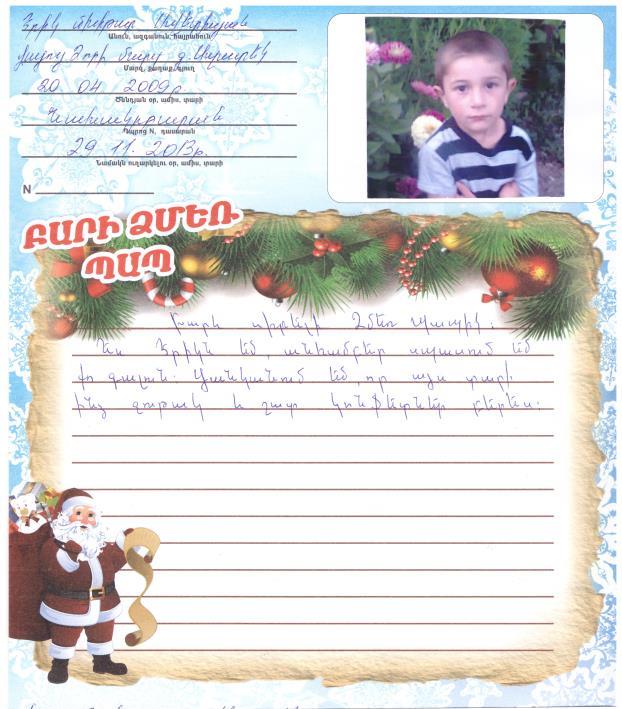 Էրիկ
Անուն, ազգանուն, հայրանուն
Վայոց Ձորի մարզ գ.
Մարզ, քաղաք, գյուղ
20 04 2009թ
Ծննդյան օր, ամիս, տարի
Նախակրթարան
Դպրոց N, դասարան
29. 11. 2013թ.
Նամակն ուղարկելու օր, ամիս, տարի
N
ԲԱՐԻ ՁՄԵՌ
ՊԱՊ
Բարև սիրելի Ձմեռ պապիկ:
Ես Էրիկն եմ, անհամբեր սպասում եմ
քո գալուն: Ցանկանում եմ, որ այս տարի
ինձ զուգակ և շատ կոնֆետներ բերես: